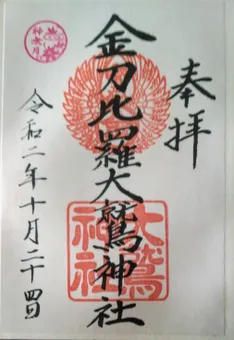 奉拝
金刀比羅大鷲神社
令和二年十月二十四日
神無月
大鷲
神社